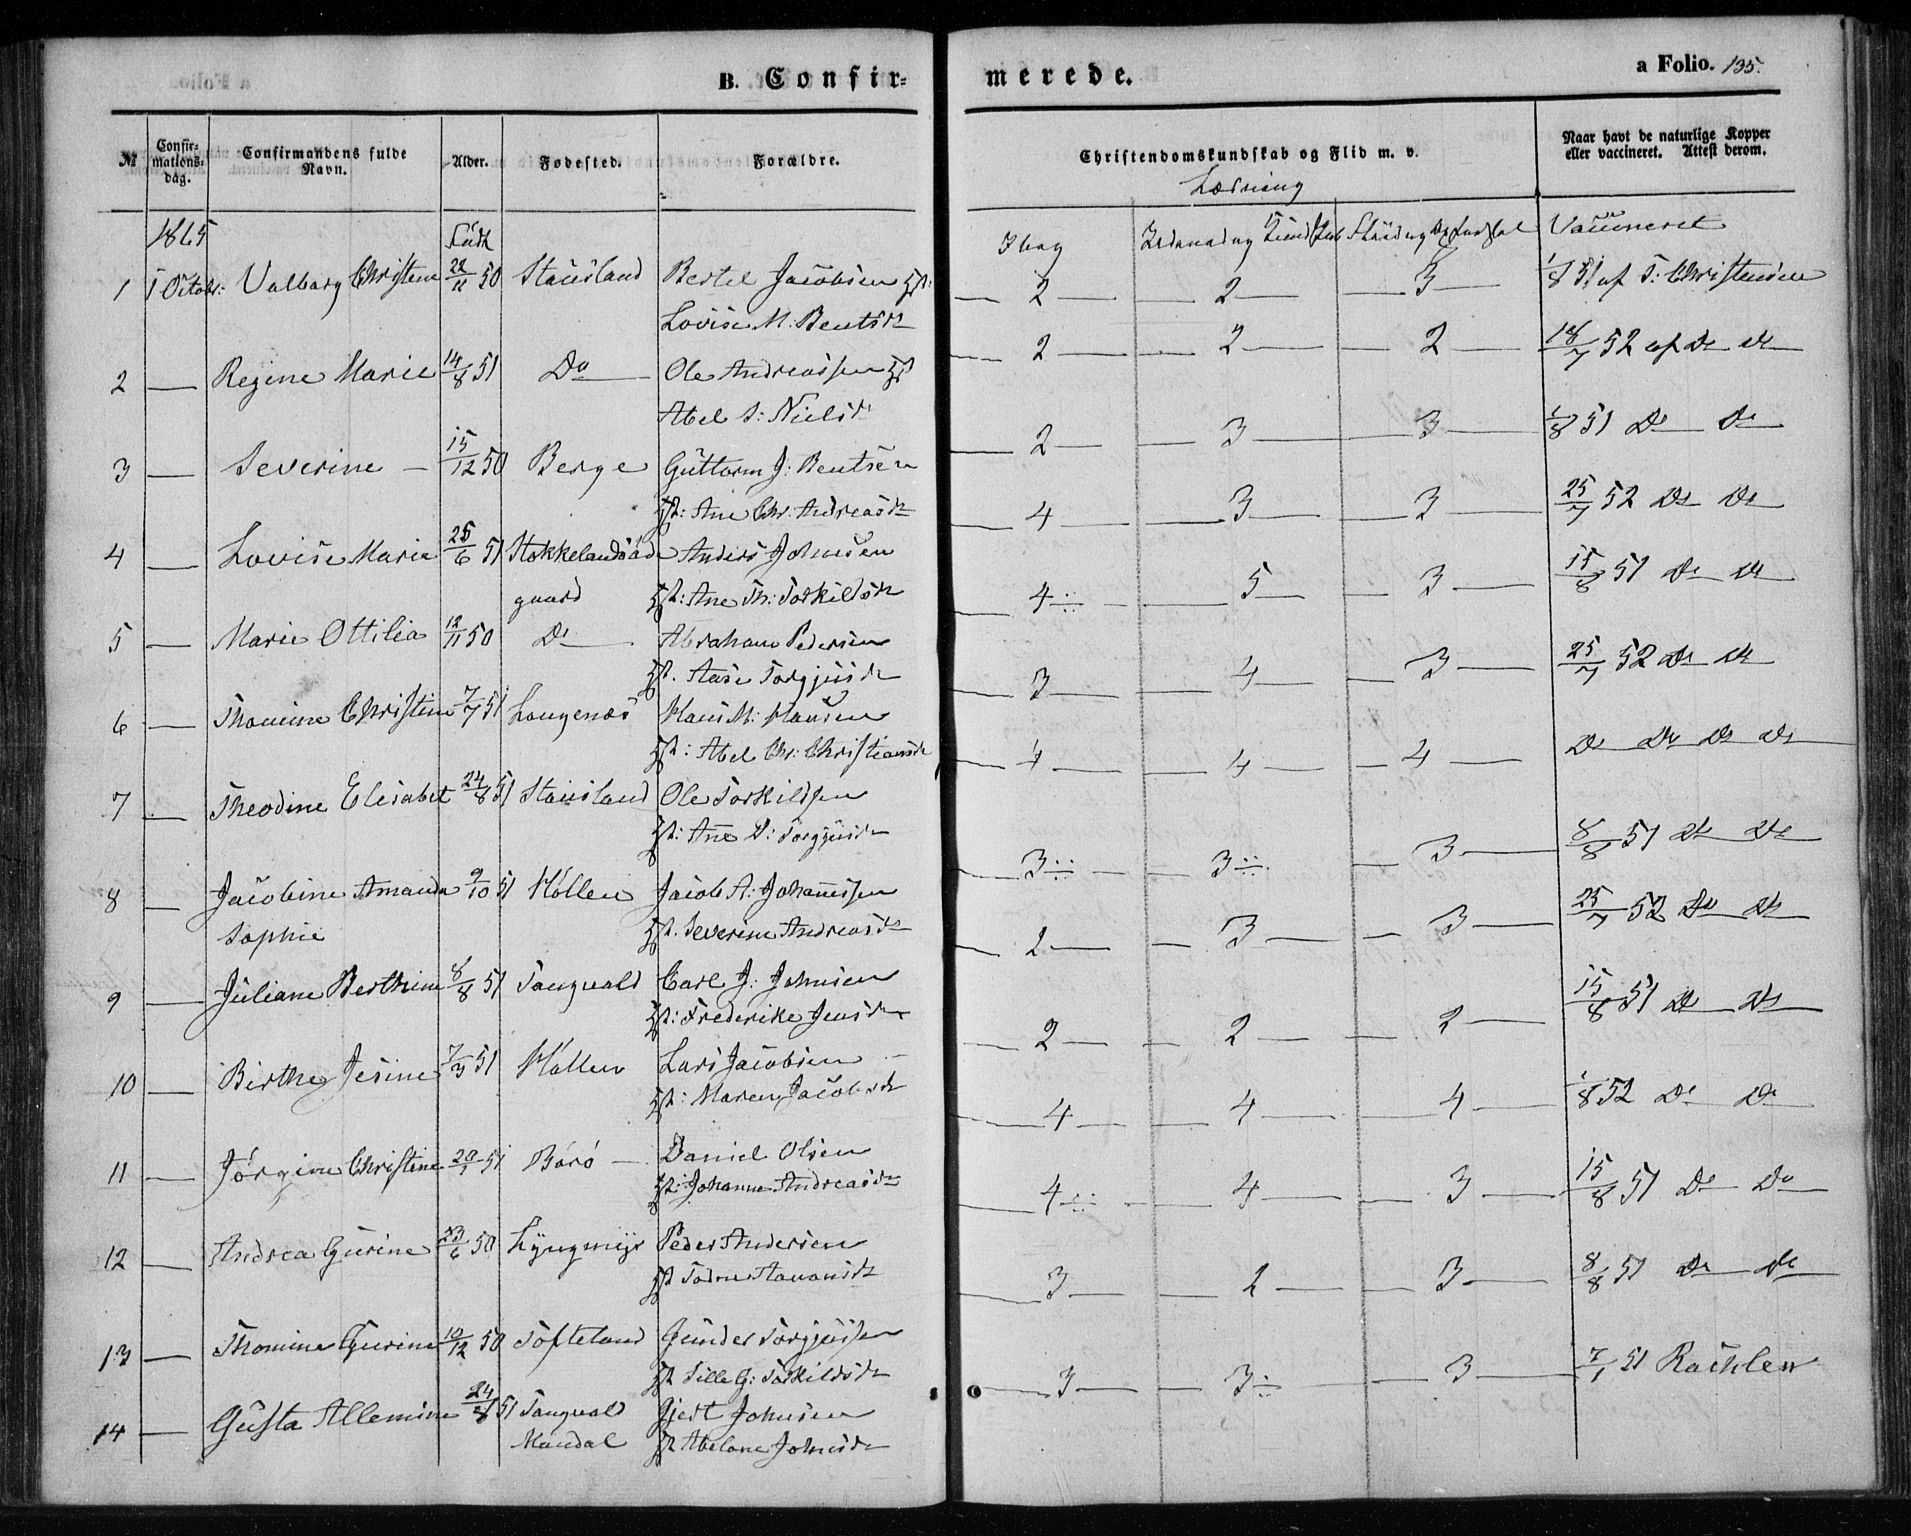 B. Confir-
merede.
a Folio. 135.
№
Confir-
mations-
dag.
Confirmandens fulde
Navn.
Alder.
Fødested.
Forældre.
Christendomskundskab og Flid m. v.
Læsning
Naar havt de naturlige Kopper
eller vaccineret. Attest derom.
1865
Født
I bog
Vaccineret
1 1 Octobr: Valborg Christine 22/11 50 Stausland Bertel Jacobsen Hst: 2 2 3 1/8 51 af T: Christensen
Lovise M: Bentsd
2 — Regine Marie 14/8 51 Do Ole Andreassen Hst 2 2 2 18/7 52 af Do Do
Abel S: Nielsd
3 — Severine — 15/12 50 Berge Guttorm J: Bentsen 2 3 3 1/8 51 Do Do
Hst: Ane Chr: Andreasd
4 — Lovise Marie 25/6 51 Stokkelandsøde Anders Johnsen 4 3 3 25/7 52 Do Do
gaard Hst: Ane Th: Torkildsd
5 — Marie Ottilia 12/11 50 Do Abraham Pedersen 4 5 3 15/8 51 Do Do
Hst. Aase Torgjusd
6 — Thomine Christine 7/7 51 Langenæs Hans M: Hansen 3 4 3 25/7 52 Do Do
Hst: Abel Chr: Christiansd
7 — Theodine Elisabet 24/8 51 Stausland Ole Torkildsen 4 4 4 Do Do Do Do
Hst: Ane D: Torgjusd
8 — Jacobine Amanda 9/10 51 Høllen Jacob A: Johannesen 3 3 3 8/8 51 Do Do
Sophie Hst. Severine Andreasd
9 — Juliane Berthine 8/8 51 Tangvald Carl J: Johnsen 2 3 3 25/7 52 Do Do
Hst: Frederike Jensd
10 — Birthe Jesine 7/3 51 Høllen Lars Jacobsen 2 2 2 15/8 51 Do Do
Hst: Maren Jacobsd
11 — Jørgine Christine 20/1 51 Borø Daniel Olsen 4 4 4 1/8 52 Do Do
Hst: Johanne Andreasd
12 — Andrea Gurine 23/6 50 Lyngmyr Peder Andersen 4 4 3 15/8 51 Do Do
Hst Torine Aavansd
13 — Thomine Gurine 10/12 50 Tofteland Gunder Torgjussen 3 2 3 8/8 51 Do Do
Hst Sille G: Torkildsd
14 — Gusta Allemine 24/8 51 Tangvald Gjert Johnsen 3 3 3 7/1 51 Rachlew
Mandal Hst Abelone Johnsd